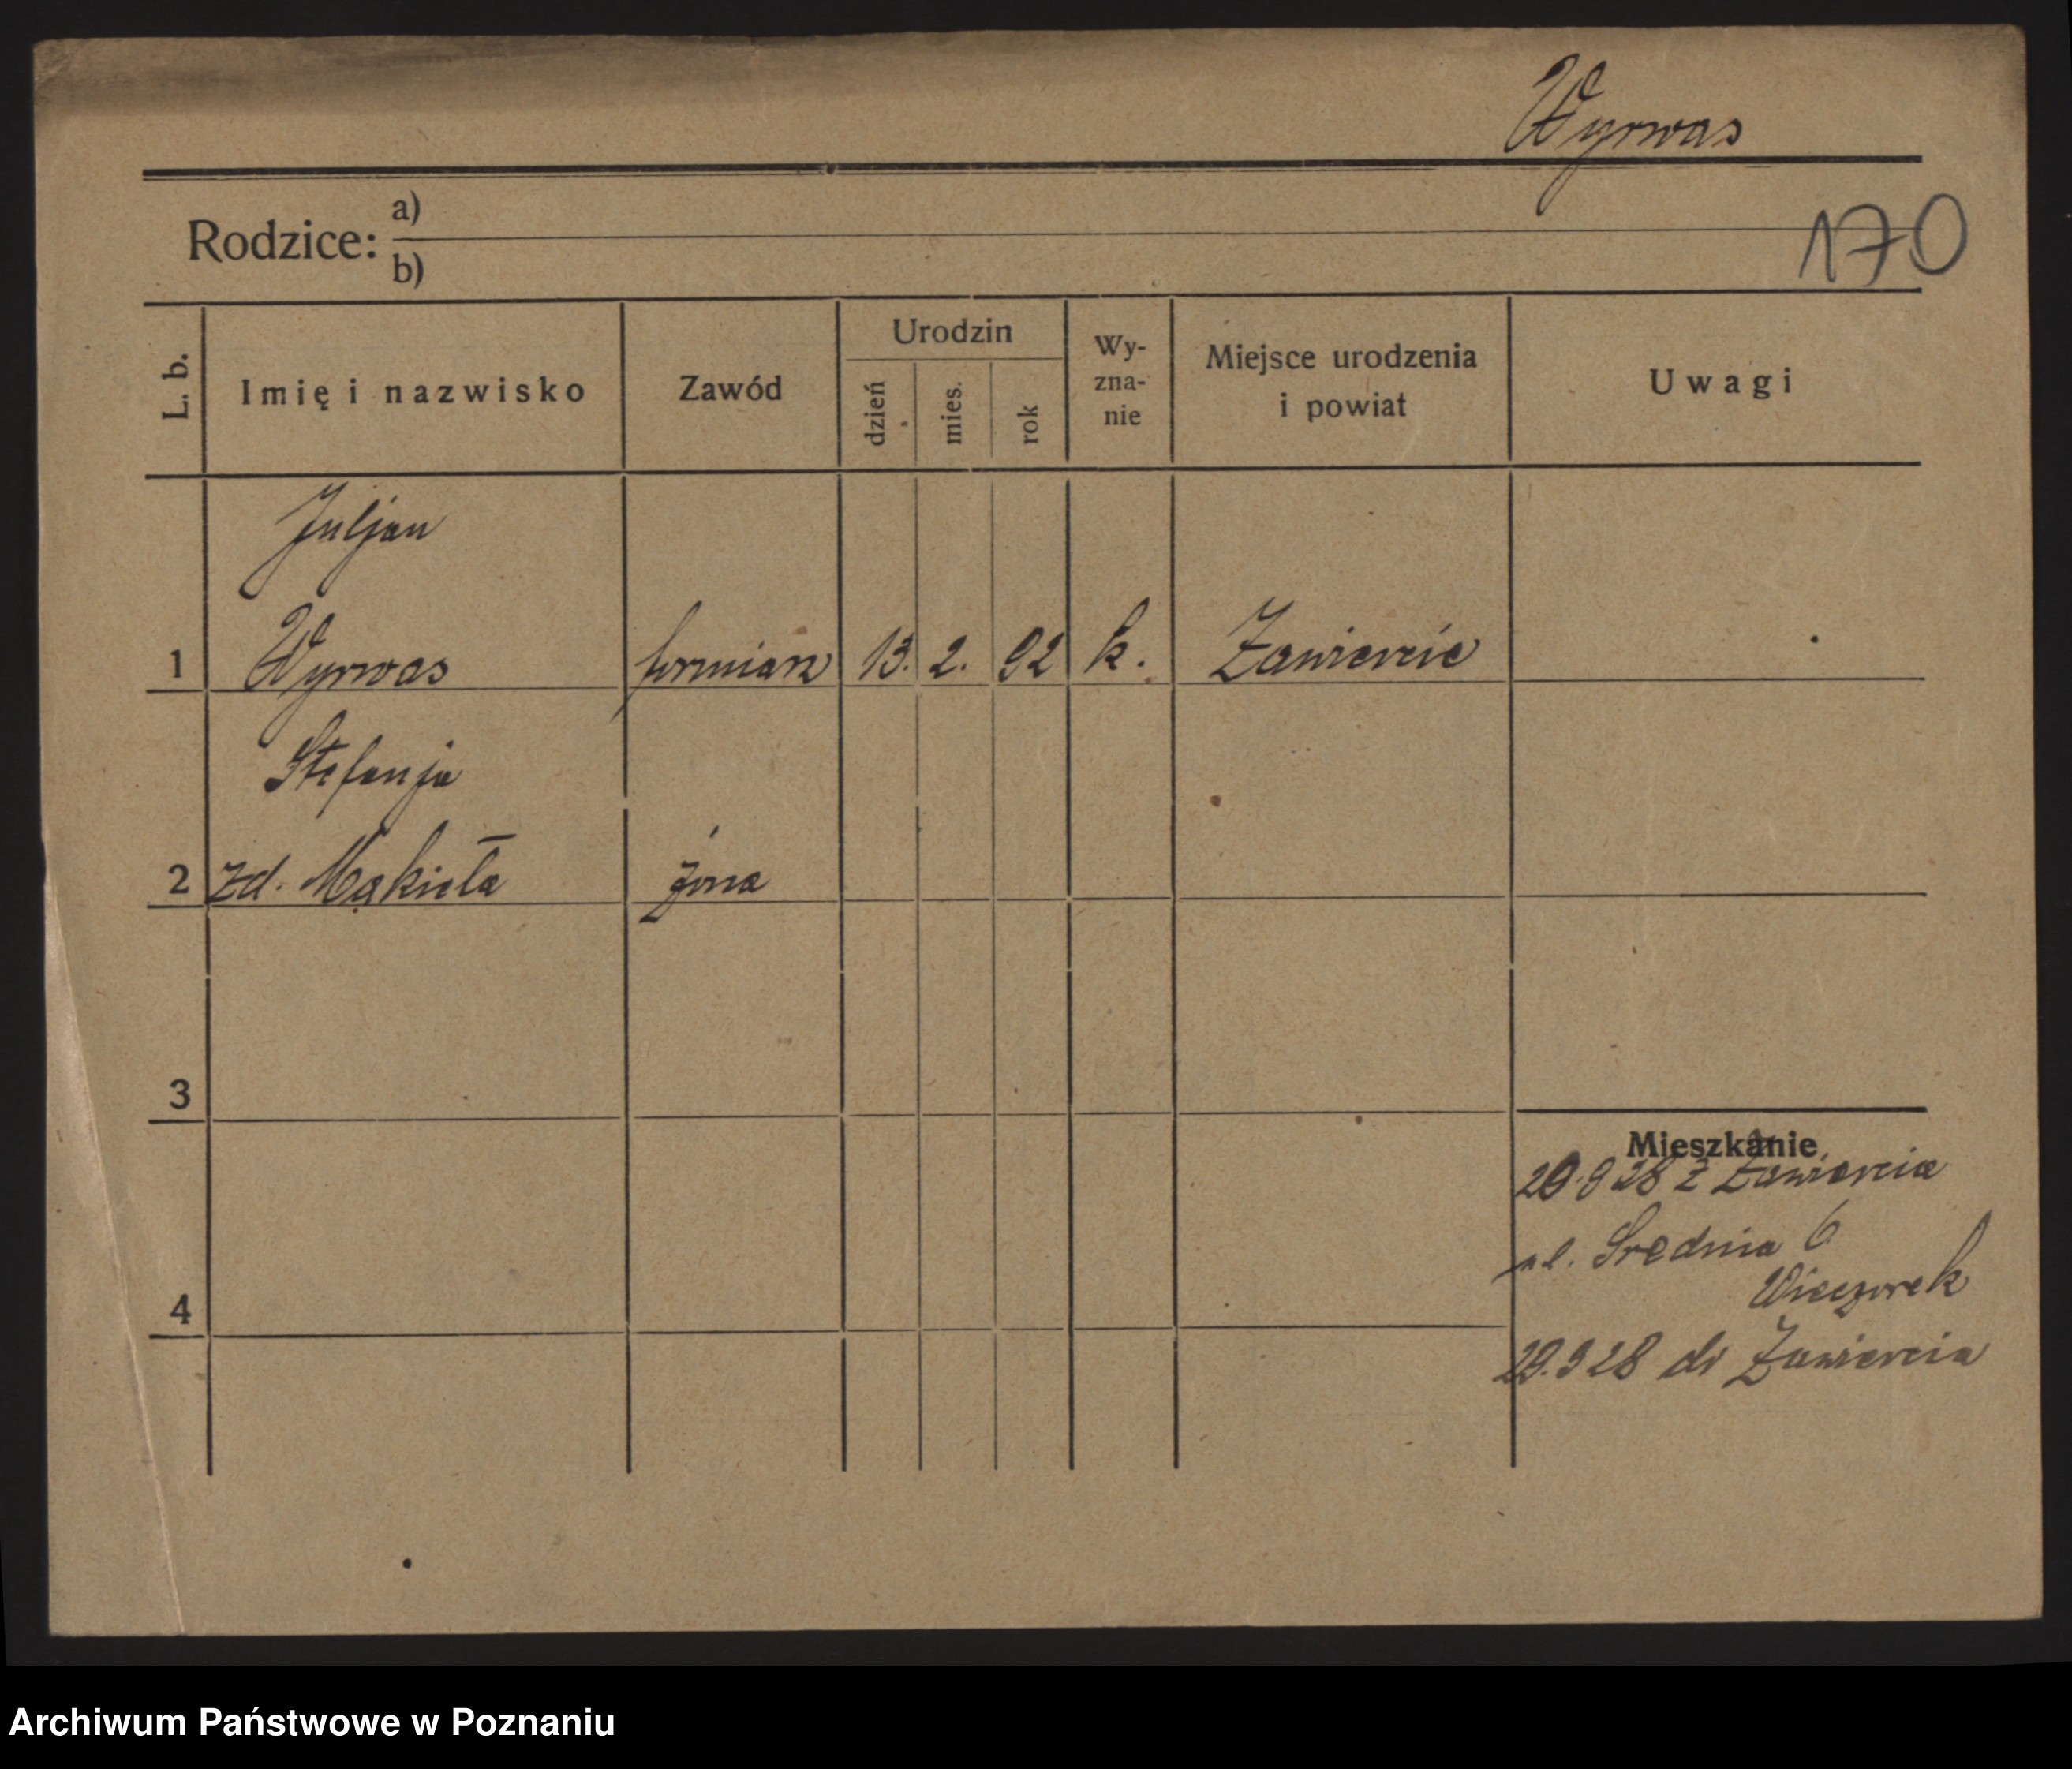 Wyrwas
170
Rodzice: a)
b)
L. b.
Imię i nazwisko
Zawód
Urodzin
dzień
mies.
rok
Wy-
zna-
nie
Miejsce urodzenia
i powiat
Uwagi
Juljan
1 Wyrwas formiarz 13. 2. 92 k. Zawiercie
Stefanja
2 zd. Mąkieła żona
3
Mieszkanie
20.9 28 z Zawiercia
ul. Średnia 6
Wieczorek
4
29.9 28 do Zawiercia
Archiwum Państwowe w Poznaniu